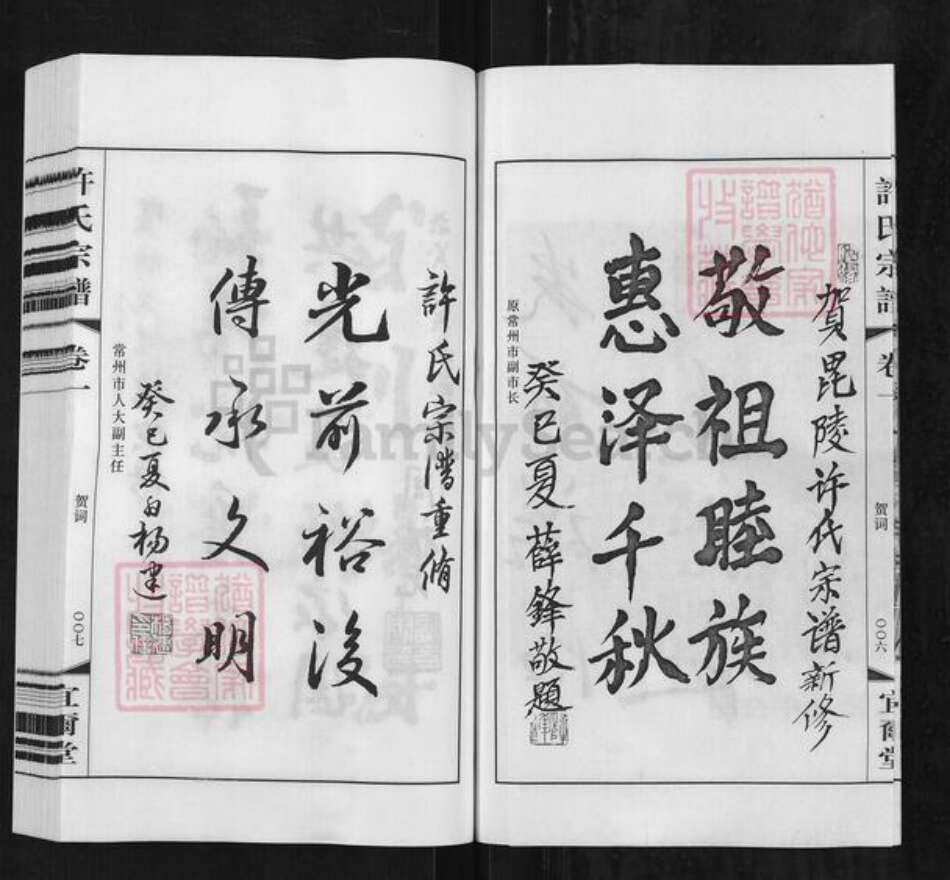 許氏宗譜
卷一
贺词
〇〇六
宜爾堂
賀毘陵许氏宗谱新修
敬祖睦族
惠泽千秋
原常州市副市长
癸巳夏薛鋒敬题
許氏宗譜重脩
光前裕後
傳承文明
常州市人大副主任
癸巳夏白楊建
許氏宗譜
卷一
贺词
〇〇七
宜爾堂
FamilySearch